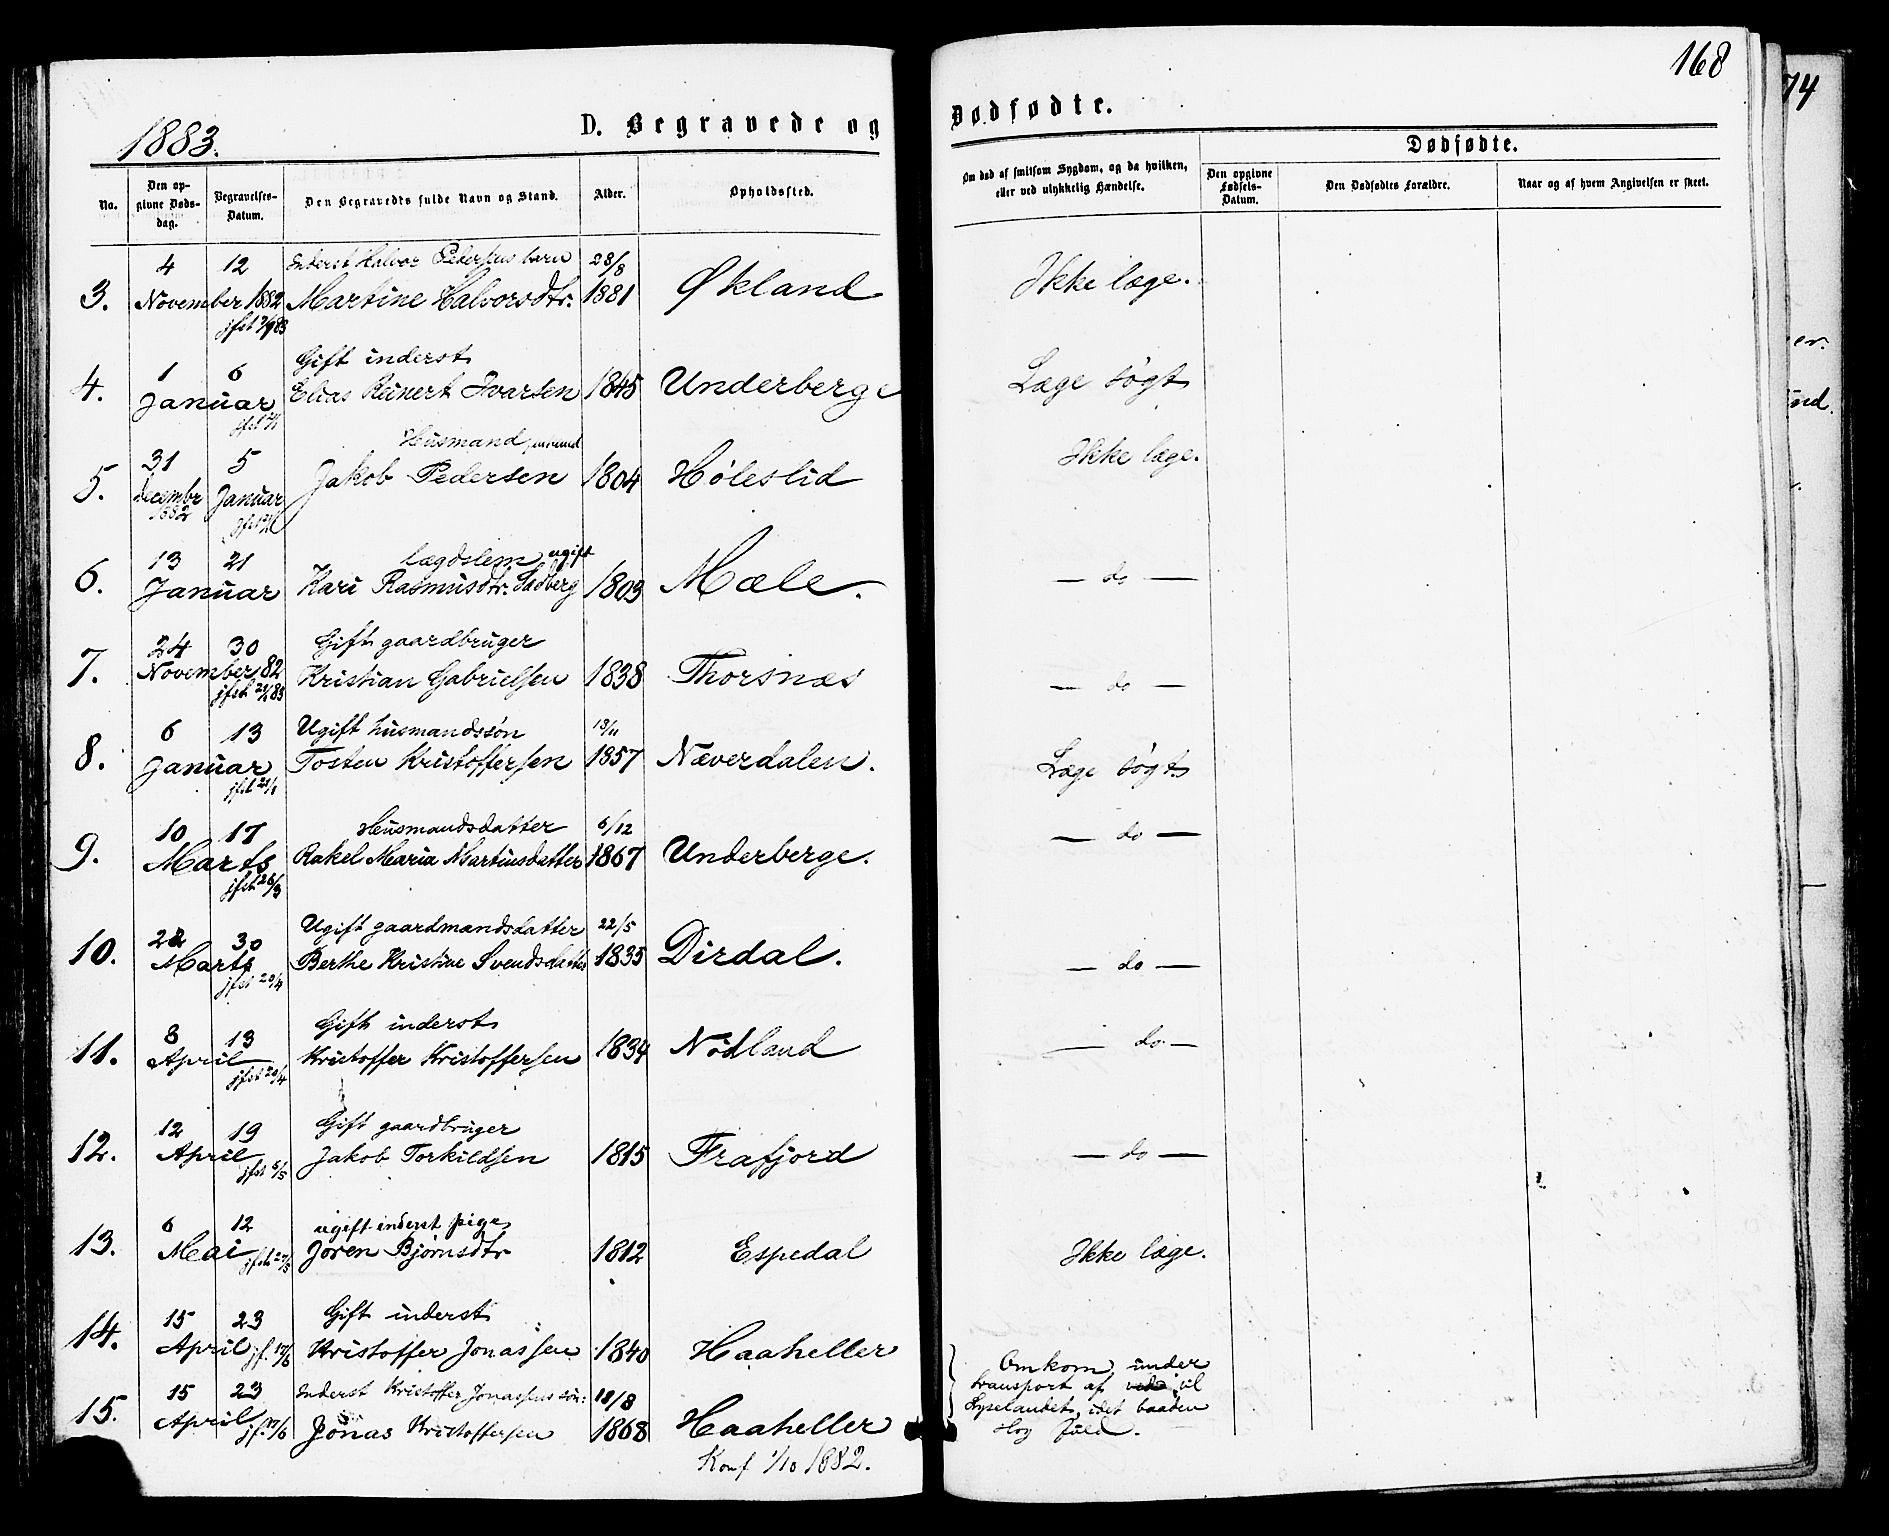 168
74
1883.
D. Begravede og Dødfødte.
Dødfødte.
No.
Den opgivne Dødsdag.
Begravelses-Datum.
Den Begravedes fulde Navn og Stand.
Alder.
Opholdssted.
Om død af smitsom Sygdom, og da hvilken, eller ved ulykkelig Hændelse.
Den opgivne Fødsels-Datum.
Den Dødfødtes Forældre.
Naar og af hvem Angivelsen er skeet.
4 12 Inderst Halvor Pedersens barn 28/8
3. November 1882 Martine Halvorsdtr. 1881 Økland Ikke læge.
Gift inderst
1 6
4. Januar Elias Reinert Ivarsen 1845 Underberge Læge søgt
jfst 21/1
Husmand
31 5
5. Jakob Pedersen 1804 Høleslid Ikke læge.
Decembr Januar
1882
13 21 lægdslem ugift
6. Januar Kari Rasmusdtr. 1803 Mæle. — do —
24 30 Gift gaardbruger
7. November 82 Kristian Gabrielsen 1838 Thorsnæs — do —
6 13 Ugift husmandssøn 13/11
8. Januar Tosten Kristoffersen 1857 Næverdalen. Læge søgt
jfst 21/1
10 17 Husmandsdatter 6/12
9. Marts Rakel Maria Martinsdatter 1867 Underberge. — do —
jfst 26/3
30 Ugift gaardmandsdatter 22/5
10. Marts Berthe Kristine Svendsdatter 1835 Dirdal. — do —
jfst 29/4
8 13 Gift inderst
11. April Kristoffer Kristoffersen 1834 Nødland — do —
jfst 29/4
12 19 Gift gaardbruger
12. April Jakob Torkildsen 1815 Frafjord — do —
jfst 6/5
6 12 ugift inderst pige
13. Mai Jøren Bjørnsdtr 1812 Espedal Ikke læge.
15 23 Gift inderst
14. April jf. 17/6 Kristoffer Jonassen 1840 Haaheller
Omkom under
transport af ved til
15 23 Inderst Kristoffer Jonassens søn: 18/8
15. April jf. 17/6 Jonas Kristoffersen 1868 Haaheller
Lyselandet, idet baaden
Konf 1/10 1882.